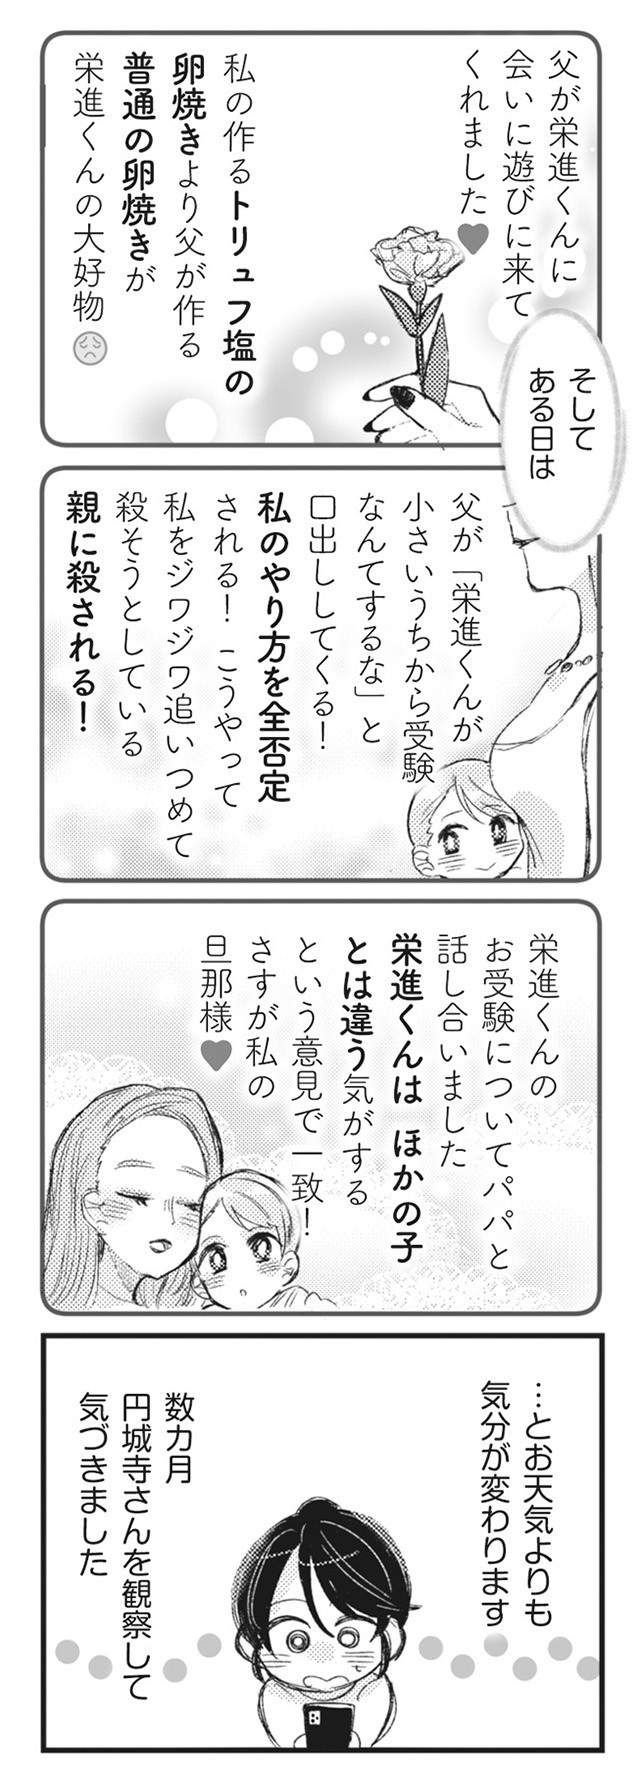 父が栄進くんに
会いに遊びに来て
くれました♥
私の作るトリュフ塩の
卵焼きより父が作る
普通の卵焼きが
栄進くんの大好物😞
そして
ある日は
父が「栄進くんが
小さいうちから受験
なんてするな」と
口出ししてくる!
私のやり方を全否定
される! こうやって
私をジワジワ追いつめて
殺そうとしている
親に殺される!
栄進くんの
お受験についてパパと
話し合いました
栄進くんは ほかの子
とは違う気がする
という意見で一致!
さすが私の
旦那様♥
…とお天気よりも
気分が変わります
数カ月
円城寺さんを観察して
気づきました